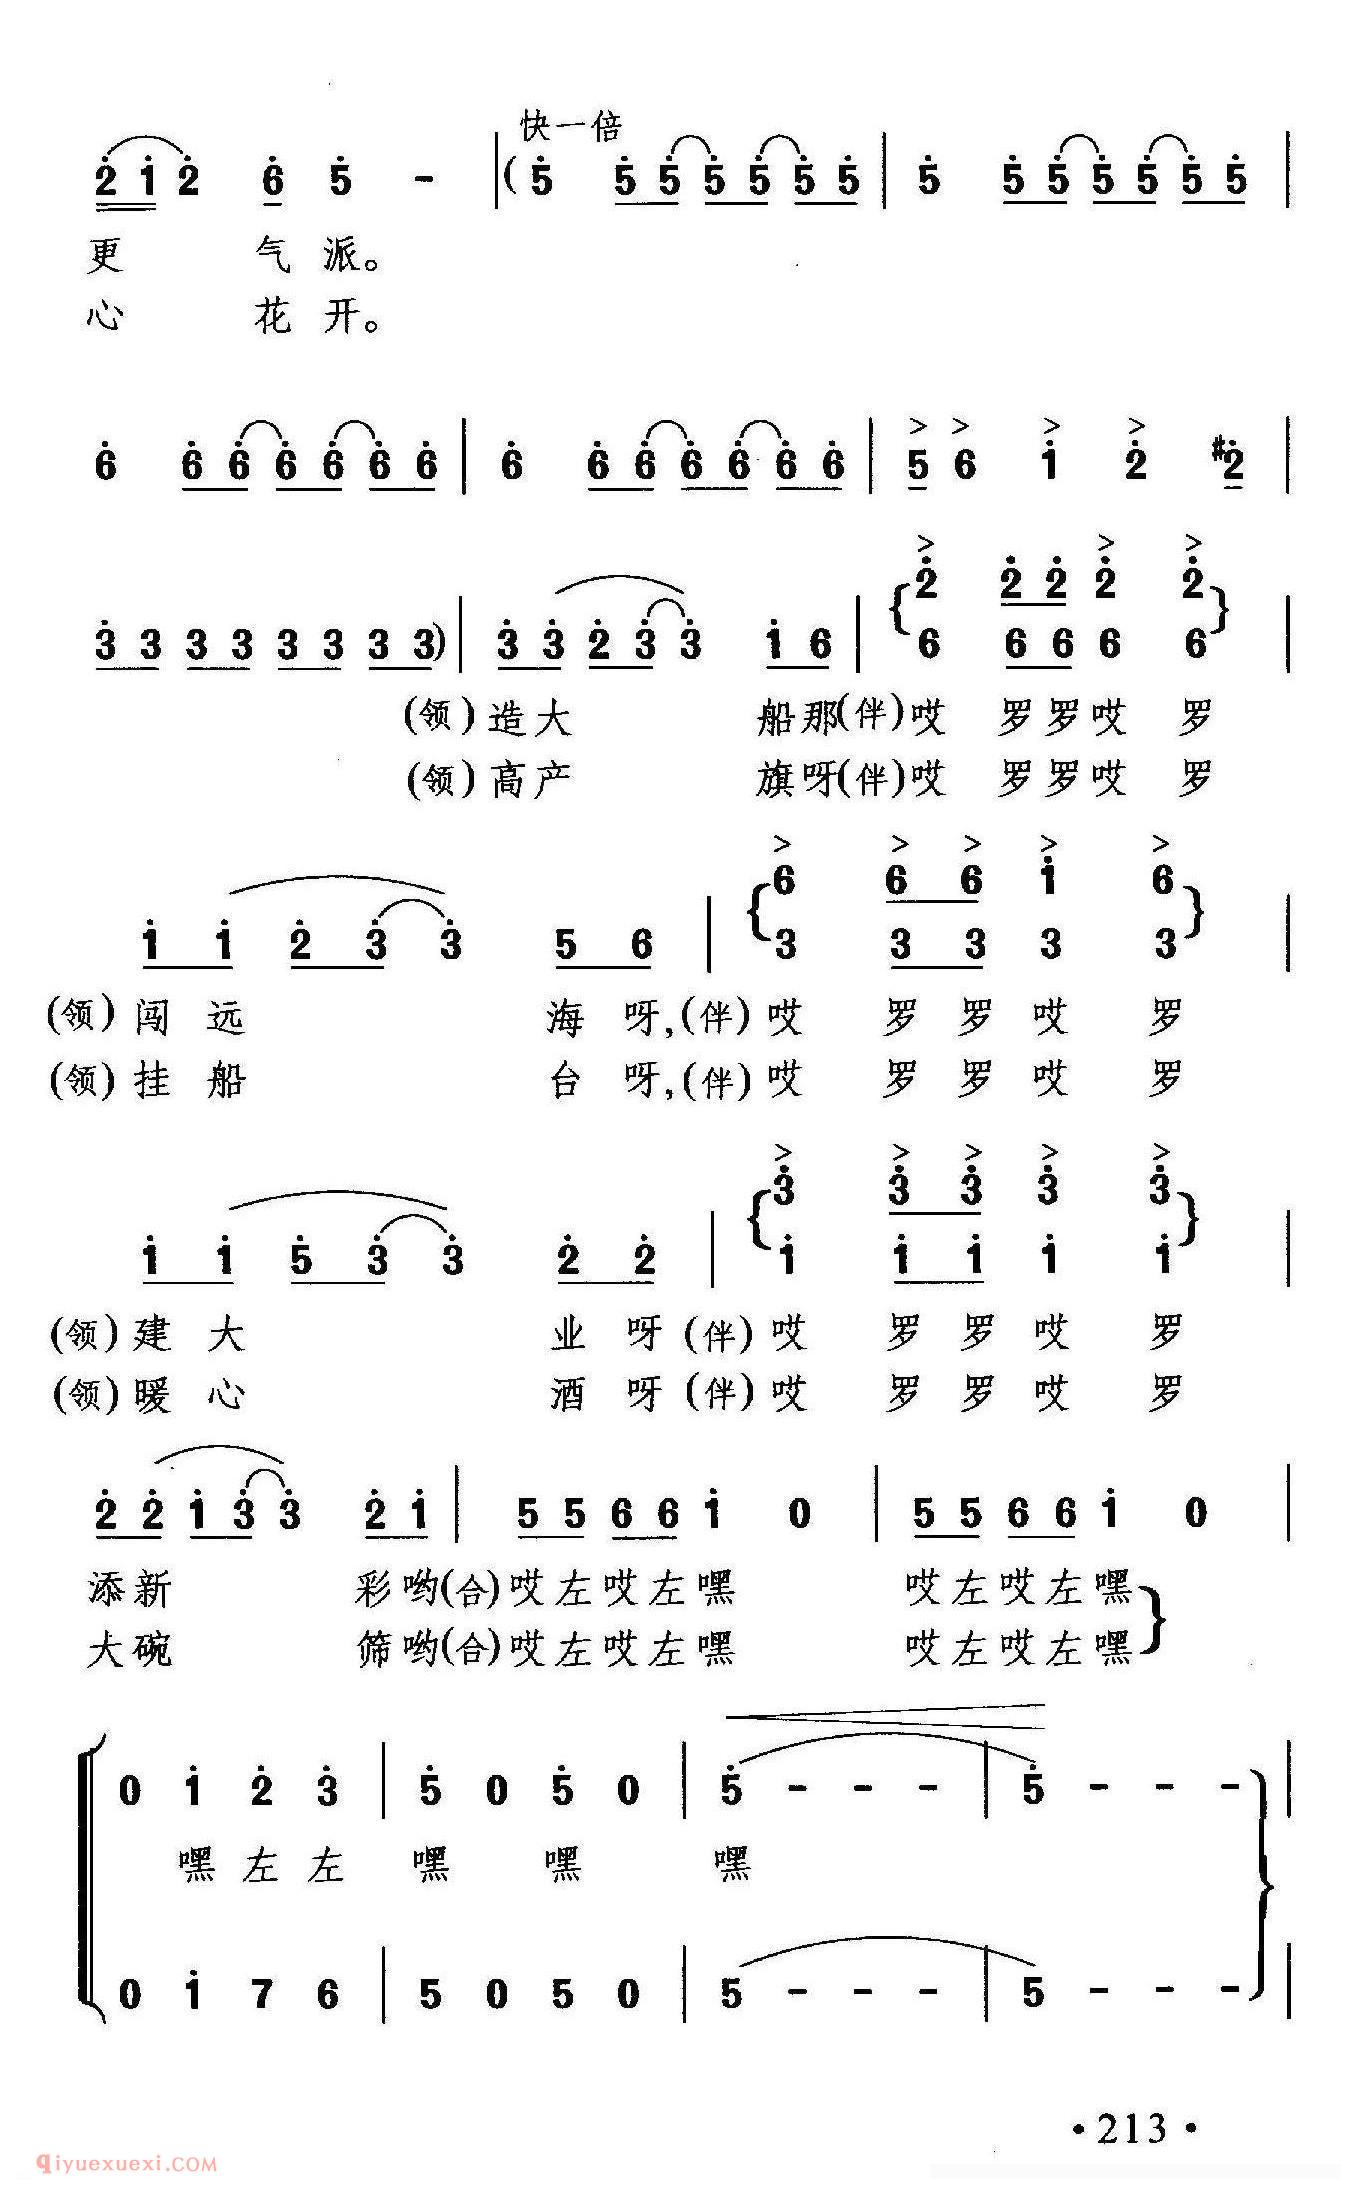 快一倍
2 1 2 6 5 - | ( 5 5 5 5 5 5 5 | 5 5 5 5 5 5 5 |
更 气 派。
心 花 开。
6 6 6 6 6 6 6 | 6 6 6 6 6 6 6 | 5 6 1 2 #2 |
2 2 2 2 2
3 3 3 3 3 3 3 3 ) | 3 3 2 3 3 1 6 | 6 6 6 6 6 |
(领) 造 大 船 那 (伴) 哎 罗 罗 哎 罗
(领) 高 产 旗 呀 (伴) 哎 罗 罗 哎 罗
6 6 6 1 6
1 1 2 3 3 5 6 | 3 3 3 3 3 |
(领) 闯 远 海 呀, (伴) 哎 罗 罗 哎 罗
(领) 挂 船 台 呀, (伴) 哎 罗 罗 哎 罗
3 3 3 3 3
1 1 5 3 3 2 2 | 1 1 1 1 1 |
(领) 建 大 业 呀 (伴) 哎 罗 罗 哎 罗
(领) 暖 心 酒 呀 (伴) 哎 罗 罗 哎 罗
2 2 1 3 3 2 1 | 5 5 6 6 1 0 | 5 5 6 6 1 0 |
添 新 彩 哟 (合) 哎 左 哎 左 嘿 哎 左 哎 左 嘿
大 碗 筛 哟 (合) 哎 左 哎 左 嘿 哎 左 哎 左 嘿
0 1 2 3 | 5 0 5 0 | 5 - - - | 5 - - - |
嘿 左 左 嘿 嘿 嘿
0 1 7 6 | 5 0 5 0 | 5 - - - | 5 - - - |
·213·
qiyuexuexi.com